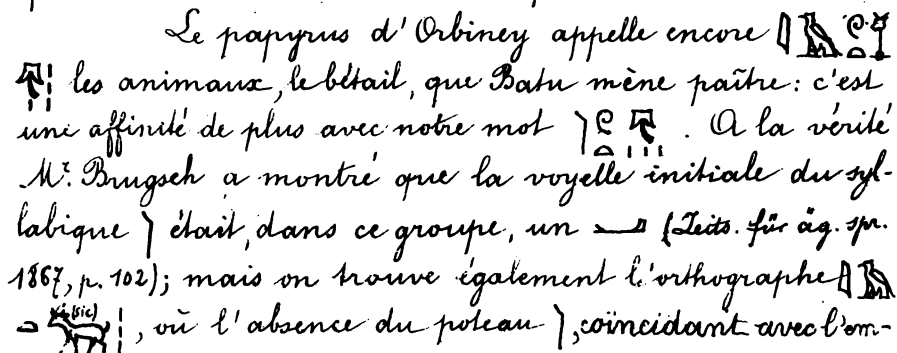 Le papyrus d'Orbiney appelle encore
les animaux, le bétail, que Batu mène paître : c'est
une affinité de plus avec notre mot . A la vérité
Mr. Brugsch a montré que la voyelle initiale du syl-
labique était, dans ce groupe, un (Zeits. für äg. spr.
1867, p. 102); mais on trouve également l'orthographe
(sic) , où l'absence du poteau , coïncidant avec l'om-